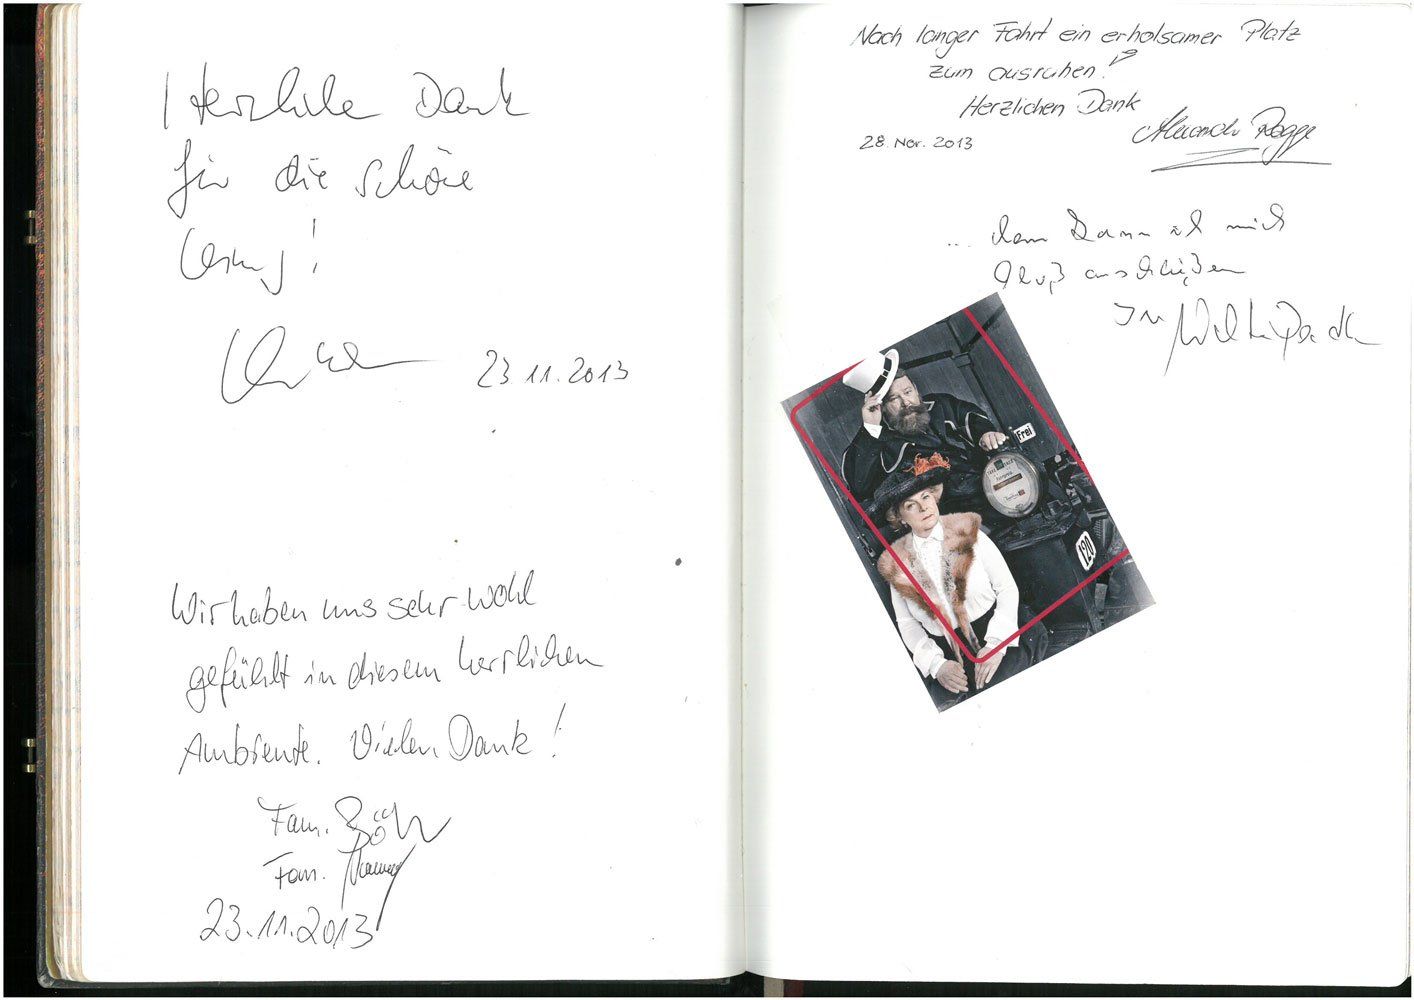 Herzliche Dank
für die schöne
23.11.2013
Wir haben uns sehr wohl
gefühlt in diesem herrlichen
Ambiente. Vielen Dank!
Fam.
Fam.
23.11.2013
Nach langer Fahrt ein erholsamer Platz
zum ausruhen!
Herzlichen Dank
28. Nov. 2013
... dem kann ich mich
nur anschließen
Ihr
Frei
120